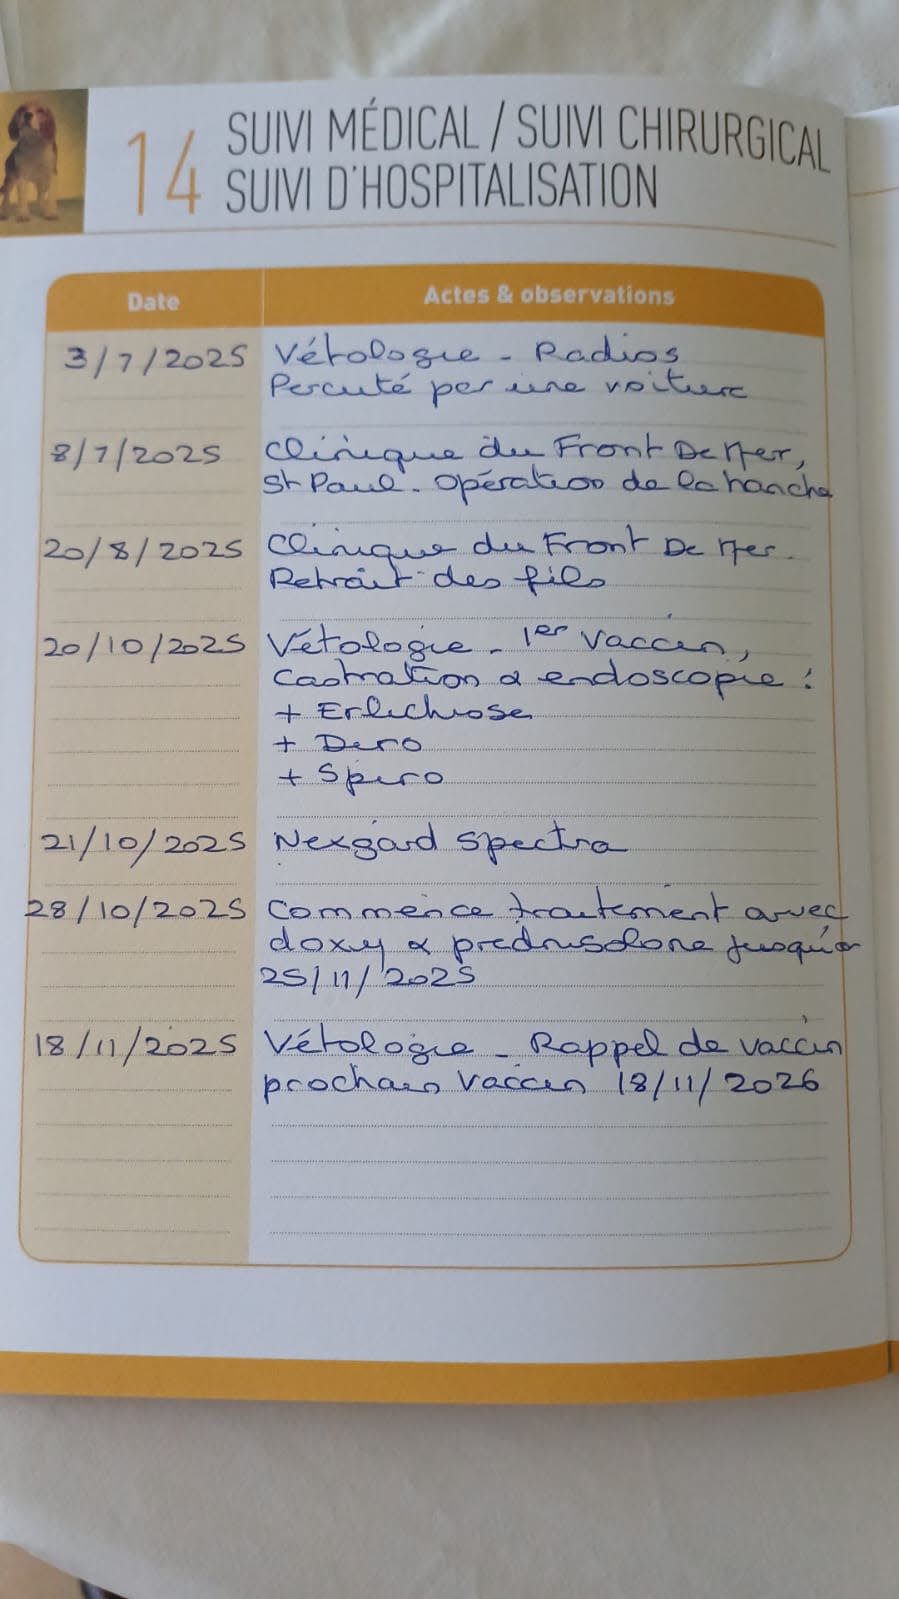 14 SUIVI MÉDICAL / SUIVI CHIRURGICAL
SUIVI D'HOSPITALISATION
Date Actes & observations
3/7/2025 Vétologie - Radios
Percuté par une voiture
8/7/2025 Clinique du Front De Mer,
St Paul. Opération de la hanche
20/8/2025 Clinique du Front De Mer.
Retrait des fils
20/10/2025 Vétologie - 1er vaccin,
Castration & endoscopie :
+ Erlichiose
+ Dero
+ Spiro
21/10/2025 Nexgard Spectra
28/10/2025 Commence traitement avec
doxy & prednisolone jusqu'à
25/11/2025
18/11/2025 Vétologie - Rappel de vaccin
prochain vaccin 18/11/2026